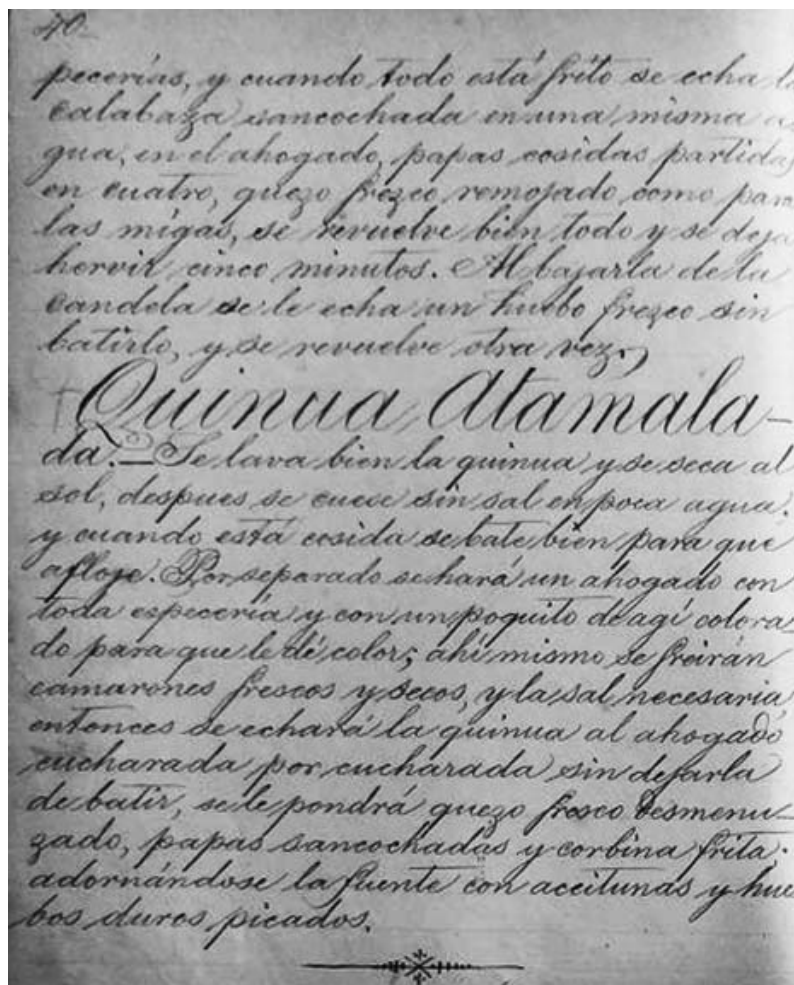 40
pecerías, y cuando todo está frito se echa la
calabaza sancochada en una misma a
gua, en el ahogado, papas cosidas partidas
en cuatro, quezo frezco remojado como para
las migas, se revuelve bien todo y se deja
hervir cinco minutos. Al bajarla de la
candela se le echa un huebo frezco sin
batirlo, y se revuelve otra vez.
Quinua Atamala-
da.—Se lava bien la quinua y se seca al
sol, despues se cuese sin sal en poca agua,
y cuando está cosida se bate bien para que
afloje. Por separado se hará un ahogado con
toda especería y con un poquito de agí colora-
do para que le dé color; ahí mismo se freirán
camarones frescos y secos, y la sal necesaria,
entonces se echará la quinua al ahogado
cucharada por cucharada sin dejarla
de batir, se le pondrá quezo fresco desmenu-
zado, papas sancochadas y corbina frita;
adornándose la fuente con aceitunas y hue
bos duros picados.